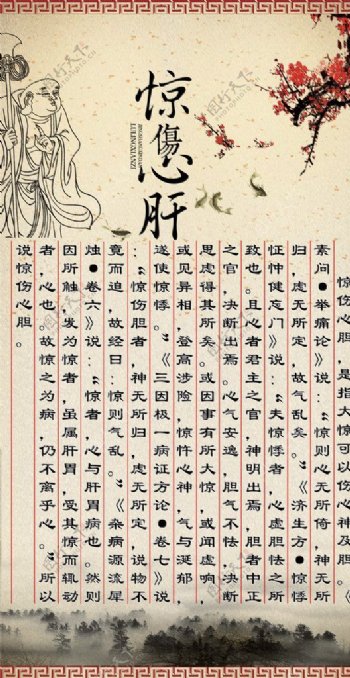 惊傷心肝
惊伤心胆，是指大惊可以伤心神及胆。《
素问●举痛论》说：“惊则心无所倚，神无所
归，虑无所定，故气乱矣。”《济生方●惊悸
怔忡健忘门》说：“夫惊悸者，心虚胆怯之所
致也。且心者君主之官，神明出焉，胆者中正
之官，决断出焉。心气安逸，胆气不怯，决断
思虑得其所矣。或因事有所大惊，或闻虚响，
或见异相，登高涉险，惊忤心神，气与涎郁，
遂使惊悸。”《三因极一病证方论●卷七》说
：“惊伤胆者，神无所归，虑无所定，说物不
竟而迫，故经曰：惊则气乱。”《杂病源流犀
烛●卷六》说：“惊者，心与肝胃病也。然则
因所触，发为惊者，虽属肝胃，受其惊而辄动
者，心也。故惊之为病，仍不离乎心。”所以
说惊伤心胆。